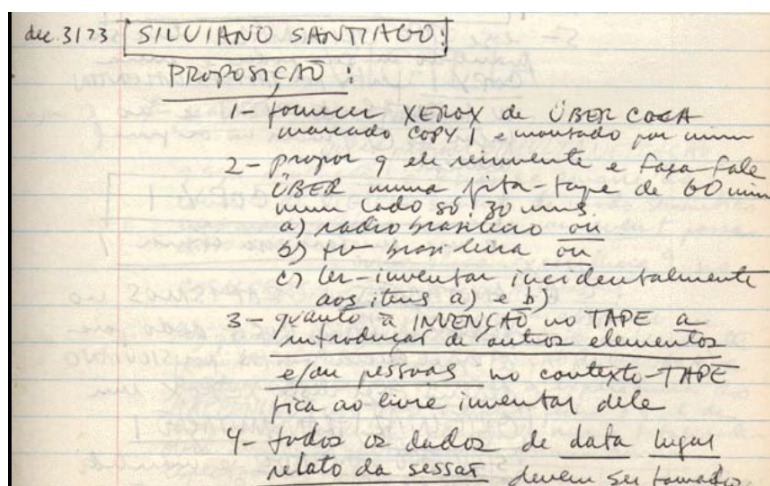 dec. 3173 SILVIANO SANTIAGO:
PROPOSIÇÃO:
1- fornecer XEROX de ÜBER COCA
marcado COPY 1 e montado por mim
2- propor q ele reinvente e faça-fale
ÜBER numa fita-tape de 60 min
num lado só: 30 mns
a) radio brasileiro ou
b) tv brasileira ou
c) ler-inventar incidentalmente
aos itens a) e b)
3- quanto à INVENÇÃO no TAPE a
introduçãO de outros elementos
e/ou pessoas no contexto-TAPE
fica ao livre inventar dele
4- todos os dados de data lugar
relato da sessão devem ser tomados